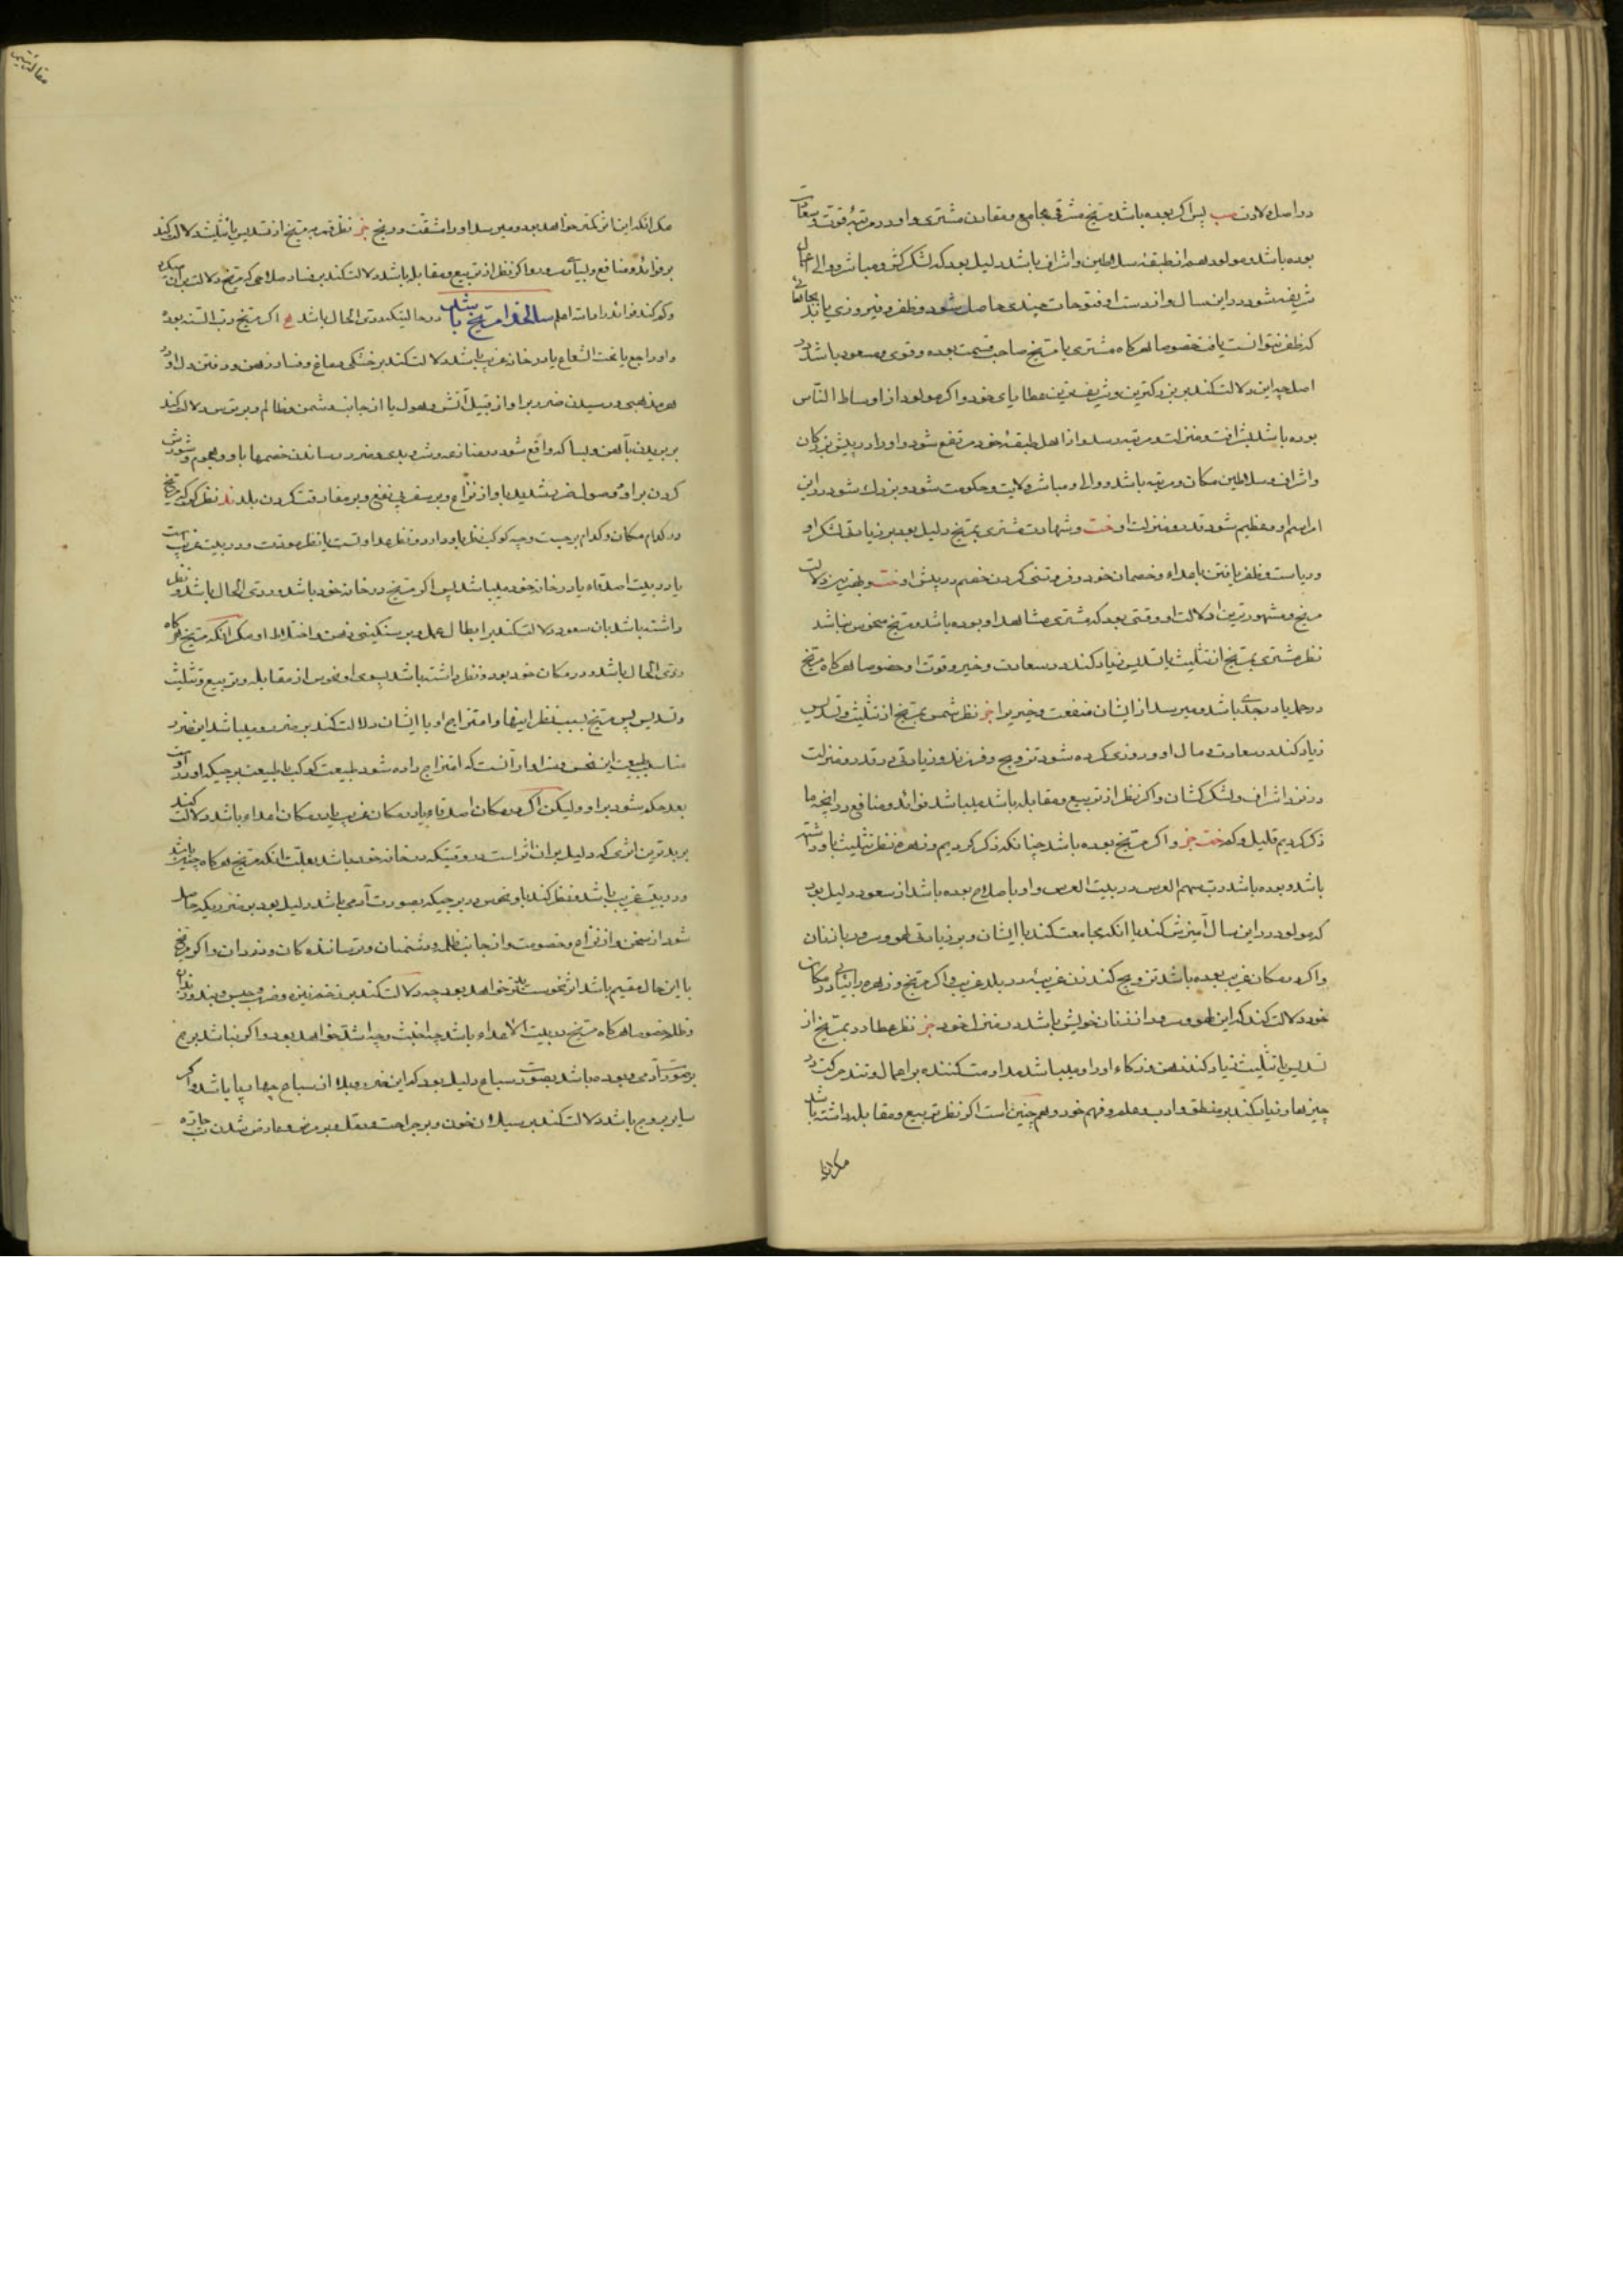 در اصل ولادت پس اگر بوده باشد مریخ مشرقی مجامع و مقارن مشتری و او در مرتبهٔ قوت و سعادت
بوده باشد و مولود هم از طبقهٔ سلاطین و اشراف باشد دلیل بود که لشکرکش و مباشر و والی اعمال
شریفه شود در این سال و از دست او فتوحات چندی حاصل شود و ظفر و فیروزی یابد
که ظفر نتوانست یافت خصوصا هرگاه مشتری یا مریخ صاحب قسمت بوده و قوی و مسعود باشد در
اصل چه این دلالت کند بر بزرگترین و شریفترین عطایای خود و اگر مولود از اوساط الناس
بوده باشد بشرافت و منزلت و مرتبه رسد و از اهل طبقهٔ خود مرتفع شود و او را در پیش بزرگان
و اشراف و سلاطین مکان و مرتبه باشد و والی و مباشر ولایت و حکومت شود و بزرگ شود در این
امر اسم او و عظیم شود قدر و منزلت او و شهادت مشتری بمریخ دلیل بود بر زیادتی لشکر او
و ریاست و ظفر یافتن باعداء و خصمان خود و فروتنی کردن خصم در پیش او و بهترین دلالت
مریخ و مشهورترین دلالت او وقتی بود که مشتری مشاهد او بوده باشد و مریخ منحوس نباشد
نظر مشتری بمریخ از تثلیث یا تسدیس زیاد کند در سعادت و خیر و قوت او خصوصا هرگاه مریخ
در حمل یا در جدی باشد و میرسد از ایشان منفعت و خیر برا نظر شمس بمریخ از تثلیث و تسدیس
زیاد کند در سعادت و مال او و روزی کرده شود تزویج و فرزند و زیادتی در قدر و منزلت
در نزد اشراف و لشکرکشان و اگر نظر از تربیع و مقابله باشد میباشد فوائد و منافع در آنچه ما
ذکر کردیم قلیل و کم و اگر مریخ بوده باشد چنانکه ذکر کردیم و زهره نظر تثلیث باو داشته
باشد و بوده باشد رب سهم العرس در بیت العرس و او باصلاح بوده باشد از سعود دلیل بود
که مولود در این سال آمیزش کند با انکه مجامعت کند با ایشان و بر زیادتی لهو و سرور با زنان
و اگر در مکان غریب بوده باشد تزویج کند زن غریبه در بلد غریب و اگر مریخ و زهره در مکان
خود دلالت کند که این لهو و سرور از زنان خویش باشد در منزل خود نظر عطارد بمریخ از
تسدیس یا تثلیث زیاد کند ذهن و ذکاء او را و میباشد مداومت کننده بر اعمال و تند حرکت در
چیزها و زیاد کند بر منطق و ادب و علم و فهم خود و هم چنین است اگر نظر تربیع و مقابله داشته باشد
مگر انکه
مقالهٔ
مگر انکه این اثر کمتر خواهد بود و میرسد او را مشقت و رنج نظر قمر بمریخ از تسدیس یا تثلیث دلالت کند
بر فوائد و منافع و اگر نظر از تربیع و مقابله باشد دلالت کند بر فساد صلاحی که مریخ دلالت بر آن میکرد
و کم کند فوائد را و الله اعلم سالخدا مریخ باشد در حالیتیکه ردی الحال باشد اگر مریخ رب السنه بوده
و او راجع یا تحت الشعاع یا در خانه غریب باشد دلالت کند بر خشکی دماغ و فساد ذهن و رفتن دل او در
هر مذهبی و رسیدن ضرر بر او از قبیل آتش و هول یا از جانب دشمن و ظالم و بر ترس دلالت کند
بر بریدن بآهن و بسا که واقع شود در منازعه و شر و بدی و ضرر رساندن خصمها باو و هجوم و شورش
کردن بر او و وصول ضرر شدید باو از نزاع و بر سفر بی نفع و بر مفارقت کردن بلد نظر کن که مریخ
در کدام مکان و کدام برجست و چه کوکب نظر باو دارد و نظر عداوتست یا نظر مودت و در بیت غریب است
یا در بیت اصدقاء یا در خانه خود میباشد پس اگر مریخ در خانه خود باشد و ردی الحال باشد و نظر
داشته باشد بان سعود دلالت کند بر ابطال عمل و بر سنگینی ذهن و اختلاط او مگر انکه مریخ هرگاه
ردی الحال باشد و در مکان خود بود و نظر داشته باشد بسوی او نحوس از مقابله و تربیع و تثلیث
و تسدیس پس مریخ بسبب نظر اینها و امتزاج او با ایشان دلالت کند بر ضرر و میباشد این ضرر
مناسب طبیعت این نحس و سزاوار آنست که امتزاج داده شود طبیعت کوکب با طبیعت برجیکه او در اوست
بعد حکم شود بر او ولیکن اگر در مکان اصدقاء یا در مکان غریب یا در مکان اعداء باشد دلالت کند
بر بدترین اثری که دلیل بر آن اثر است در وقتیکه در خانه خود باشد بعلت انکه مریخ هرگاه چنین باشد
و در بیت غریب باشد و نظر کند باو نحوس در برجیکه بصورت آدمی باشد دلیل بود بر ضرریکه حاصل
شود از سخن و از نزاع و خصومت و از جانب ظلمه و دشمنان و ترسانندگان و دزدان و اگر مریخ
با این حال مقیم باشد اثر نحوست بدتر خواهد بود چه دلالت کند بر زخم نیزه و ضرب و حبس و بند و زندان
و ظلم خصوصا هرگاه مریخ در بیت الاعداء باشد چه اخبث و چه اشد خواهد بود و اگر نباشد برج
بر صورت آدمی و بوده باشد بصورت سباع دلیل بود که این ضرر و بلا از سباع چهارپا باشد و اگر
سایر بروج باشد دلالت کند بر سیلان خون و بر جراحت و علل و بر مرض و عارض شدن تب حاره